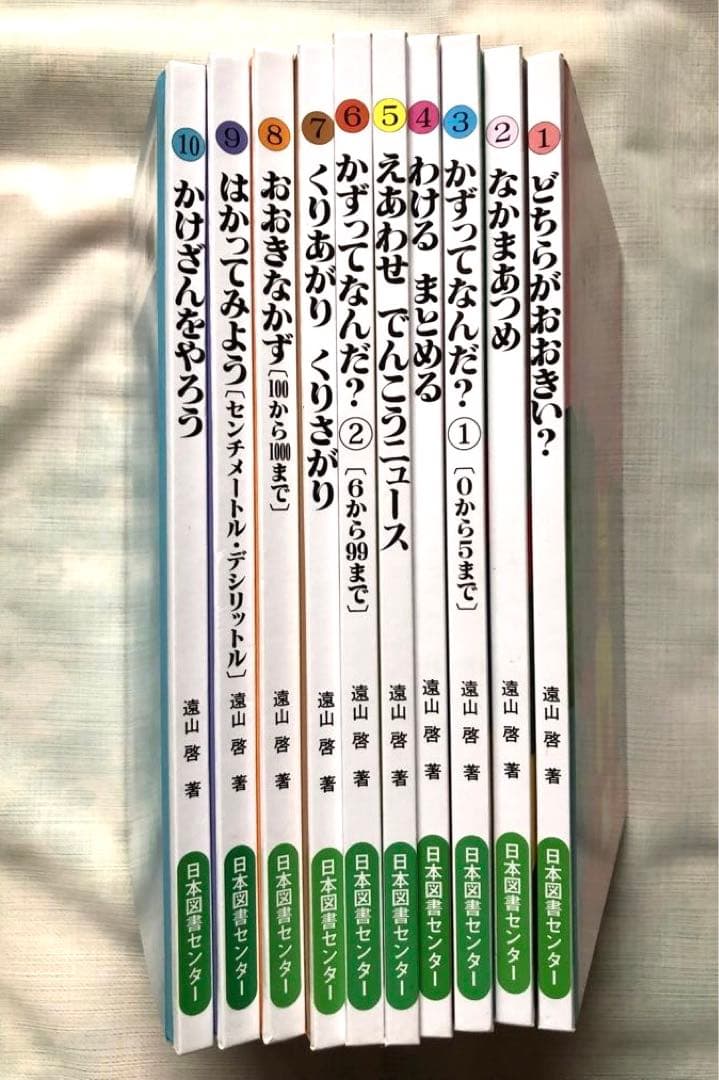 1
どちらがおおきい?
遠山 啓 著
日本図書センター
2
なかまあつめ
遠山 啓 著
日本図書センター
3
かずってなんだ?①〔0から5まで〕
遠山 啓 著
日本図書センター
4
わける まとめる
遠山 啓 著
日本図書センター
5
えあわせ でんこうニュース
遠山 啓 著
日本図書センター
6
かずってなんだ?②〔6から99まで〕
遠山 啓 著
日本図書センター
7
くりあがり くりさがり
遠山 啓 著
日本図書センター
8
おおきなかず〔100から1000まで〕
遠山 啓 著
日本図書センター
9
はかってみよう〔センチメートル・デシリットル〕
遠山 啓 著
日本図書センター
10
かけざんをやろう
遠山 啓 著
日本図書センター